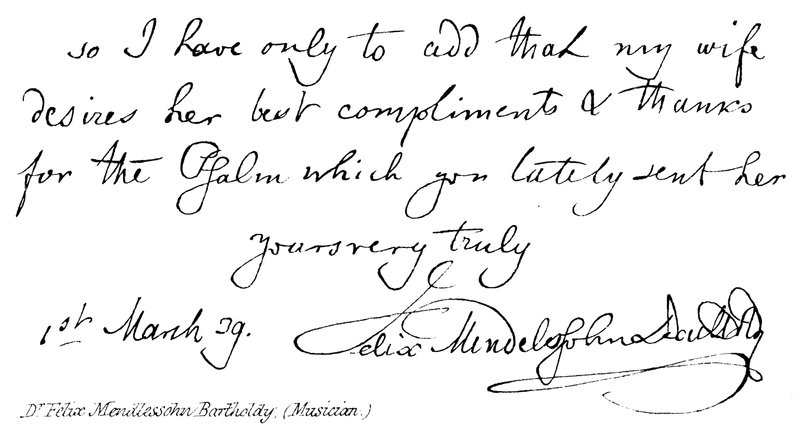 so I have only to add that my wife
desires her best compliments & thanks
for the Psalm which you lately sent her
yours very truly
1st March 39.
Felix Mendelssohn Bartholdy
Dr. Felix Mendlessohn Bartholdy. (Musician.)